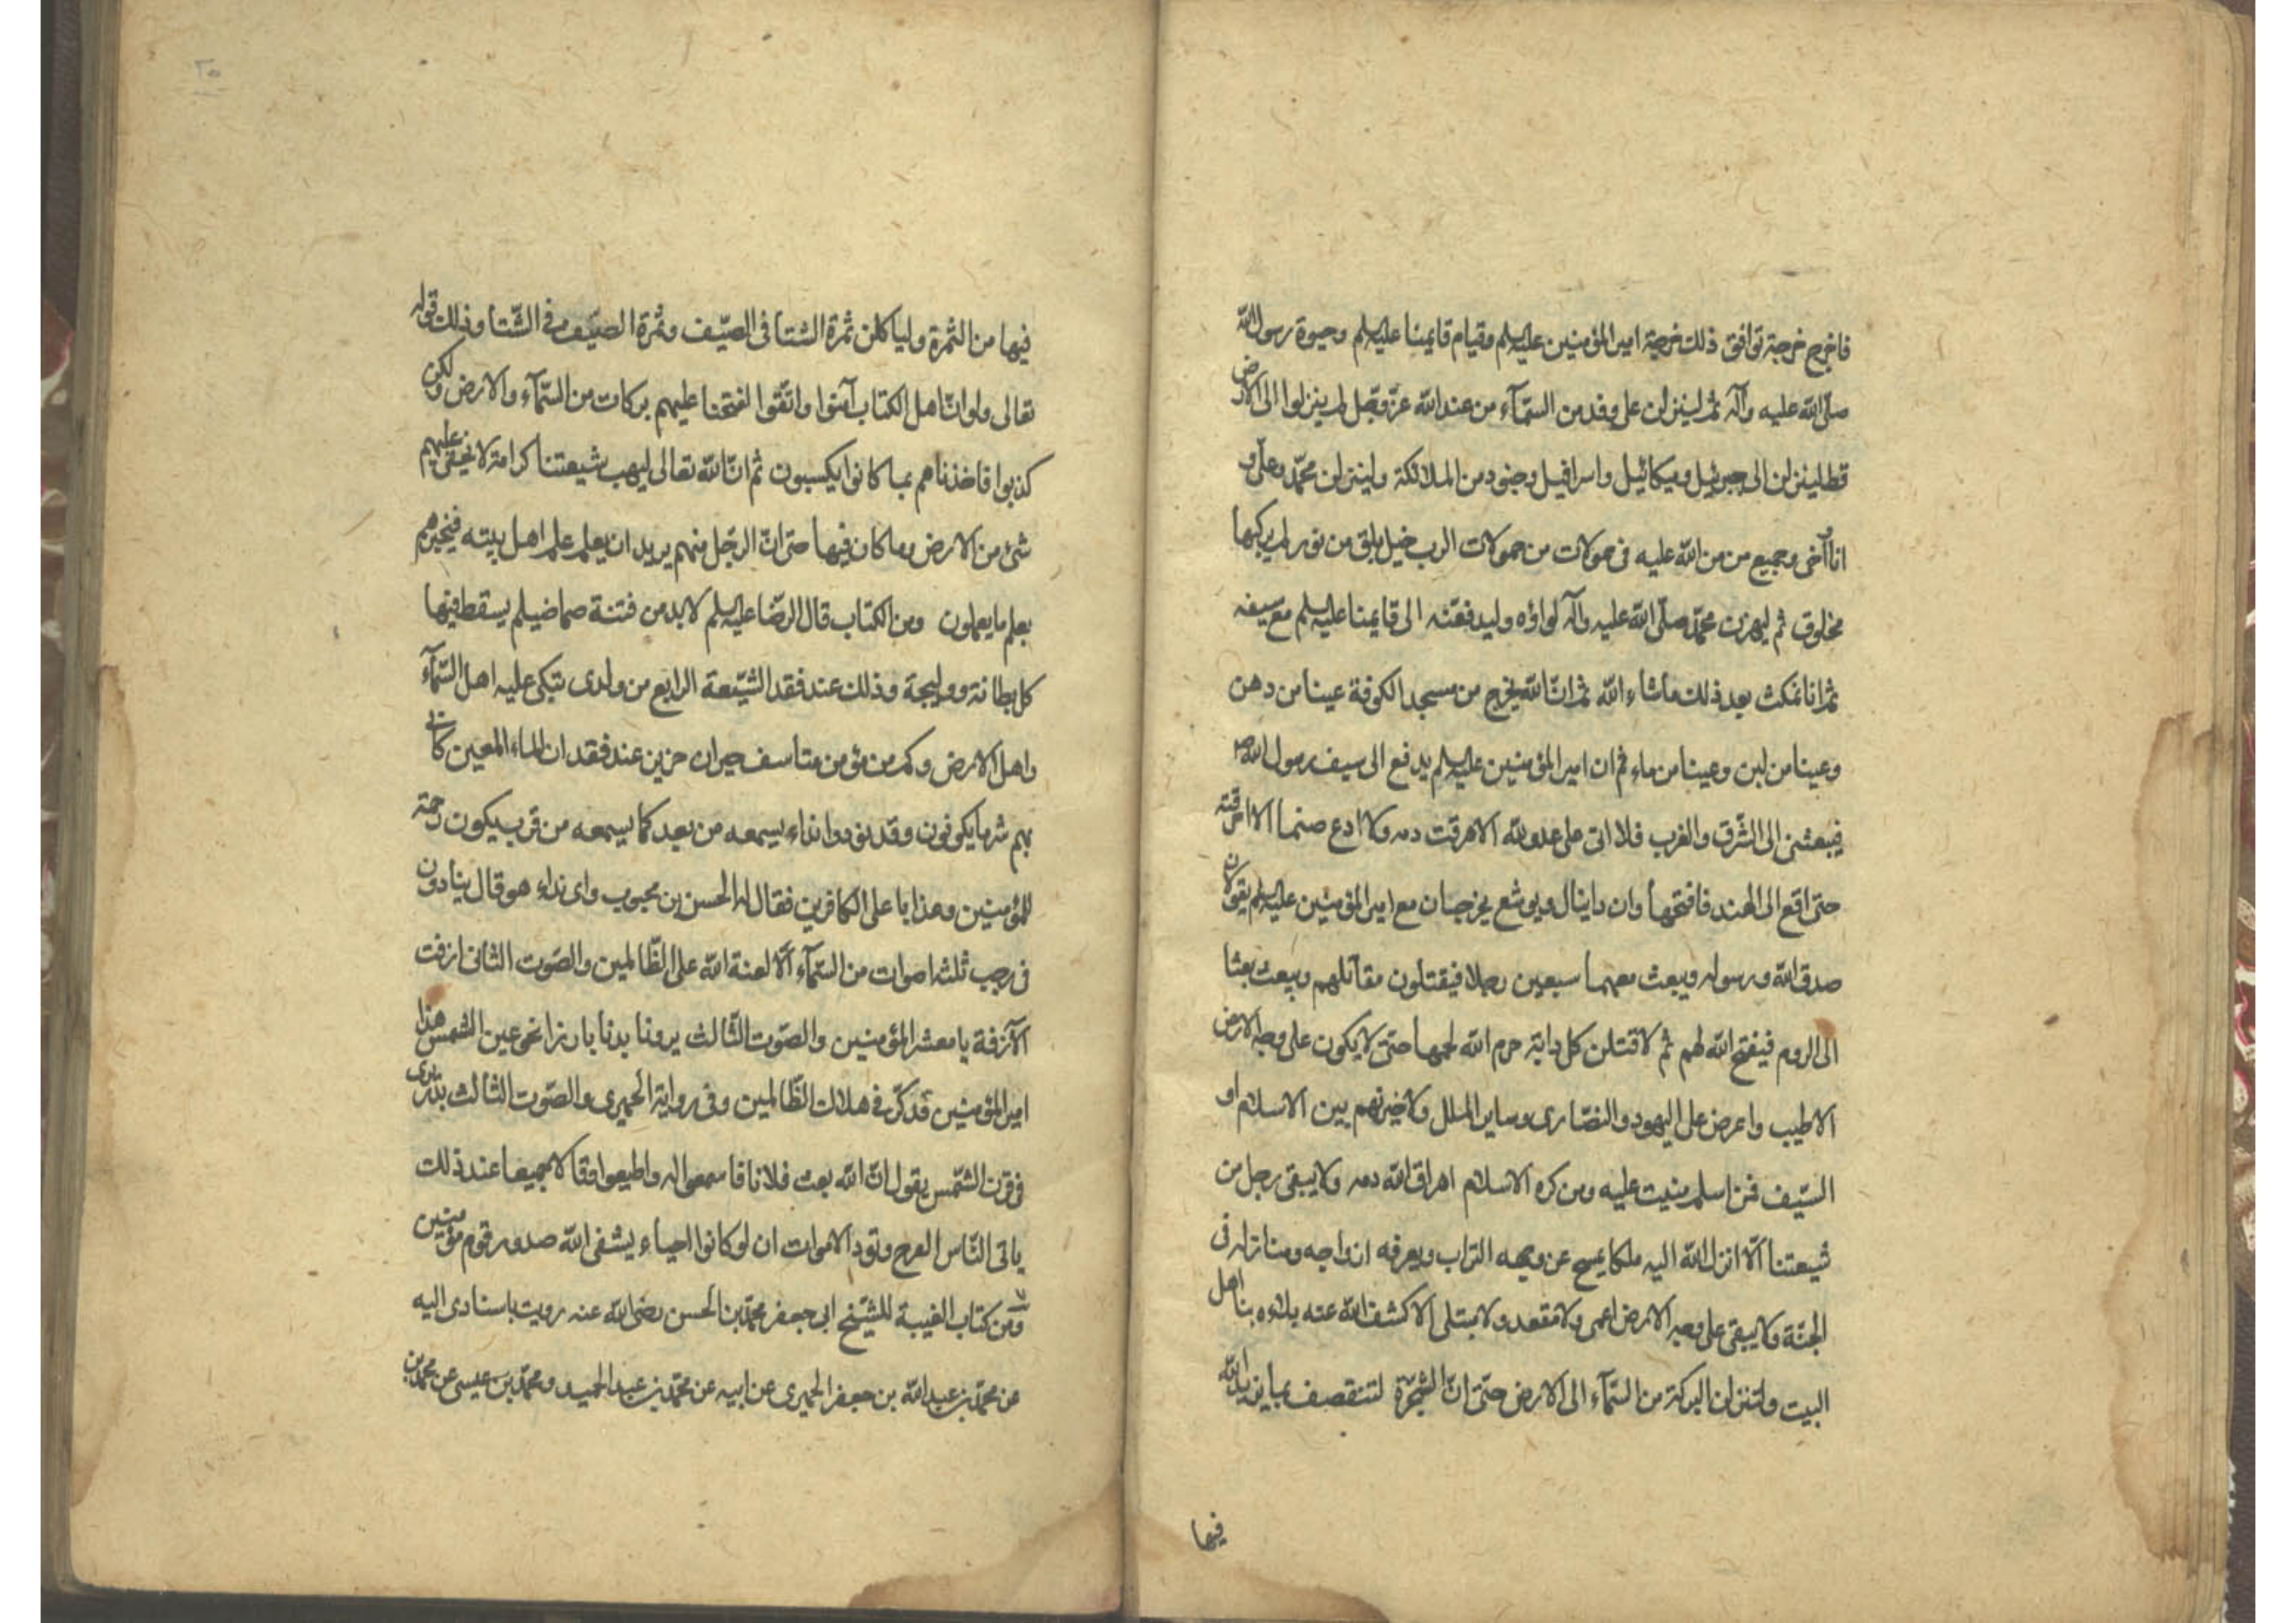 فاخرج خرجة توافق ذلك خرجة امير المؤمنين عليه السلم وقيام قايمنا عليه السلم وحيوة رسول الله
صلّى الله عليه وآله ثم لينزلن على وفد من السّمآء من عند الله عزّ وجّل لم ينزلوا الى الارض
قط لينزلن الى جبرئيل وميكائيل واسرافيل وجنود من الملائكة ولينزلن محمّد وعلّى و
انا وآخى وجميع من من الله عليه فى حمولات من حمولات الرب خيل بلق من نور لم يركبها
مخلوق ثم ليهزن محمّد صلّى الله عليه وآله لواؤه وليدفعّنه الى قايمنا عليه السلم مع سيفه
ثم انا نمكث بعد ذلك ماشاء الله ثم انّ الله يخرج من مسجد الكوفة عينا من دهن
وعينا من لبن وعينا من ماء ثم ان امير المؤمنين عليه السلم يدفع الى سيف رسول الله ص
فيبعثنى الى الشّرق والغرب فلا اتى على عدو لله الا هرقت دمه ولا ادع صنما الا احرقته
حتى اقع الى الهند فافتحها وان دانيال ويوشع يخرجان مع امير المؤمنين عليه السلم يقولان
صدق الله ورسوله ويبعث معهما سبعين رجلا فيقتلون مقاتلهم ويبعث بعثا
الى الروم فيفتح الله لهم ثم لاقتلن كل دابّة حرم الله لحمها حتى لا يكون على وجه الارض
الا طيب واعرض على اليهود والنصّارى وساير الملل ولاخيرنهم بين الاسلام او
السّيف فمن اسلم مننت عليه ومن كره الاسلام اهراق الله دمه ولا يبقى رجل من
شيعتنا الّا انزل الله اليه ملكا يمسح عن وجهه التراب ويعرفه ازواجه ومنازله فى
الجنّة ولا يبقى على وجه الارض اعمى ولا مقعد ولا مبتلى الا كشف الله عنه بلاءه بنا اهل
البيت ولتنزلن البركة من السّمآء الى الارض حتى انّ الشّجرة لتنقصف بما يزيد الله
فيها
٢٥
فيها من الثمرة ولياكلن ثمرة الشتا فى الصيّف وثمرة الصيّف فى الشّتا وذلك قوله
تعالى ولو انّ اهل الكتاب آمنوا واتّقوا لفتحنا عليهم بركات من السّمآء والارض ولكن
كذبوا فاخذناهم بما كانوا يكسبون ثم انّ الله تعالى ليهب شيعتنا كرامة لا يخفى عليهم
شئ من الارض وما كان فيها حتى انّ الرّجل منهم يريد ان يعلم علم اهل بيته فيخبرهم
بعلم ما يعملون ومن الكتاب قال الرضّا عليه السلم لابد من فتنة صما ضيلم يسقط فيها
كل بطانة ووليجة وذلك عند فقد الشيّعة الرابع من ولدى تبكى عليه اهل السّمآء
واهل الارض وكم من مؤمن متاسف حيران حزين عند فقدان الماء المعين كانى
بهم شر ما يكونون وقد نودوا نداء يسمعه من بعد كما يسمعه من قرب يكون رحمة
للمؤمنين وعذابا على الكافرين فقال له الحسن بن محبوب واى نداء هو قال ينادون
فى رجب ثلثة اصوات من السّمآء الّا لعنة الله على الظّالمين والصّوت الثّانى ازفت
الآزفة يا معشر المؤمنين والصّوت الثّالث يرونا بدنا بارزا نحو عين الشمس هذا
امير المؤمنين قد كرّ فى هلاك الظّالمين وفى رواية الحميرى والصّوت الثّالث بدن يرى
فى قرن الشّمس يقول انّ الله بعث فلانا فاسمعوا له واطيعوا فقالا جميعا عند ذلك
ياتى النّاس الفرح وتود الاموات ان لو كانوا احياء ويشفى الله صدور قوم مؤمنين
ومن كتاب الغيبة للشيّخ ابى جعفر محمّد بن الحسن رضى الله عنه رويت باسنادى اليه
عن محمّد بن عبد الله بن جعفر الحميرى عن ابيه عن محمّد بن عبد الحميد ومحمّد بن عيسى عن محمّد بن